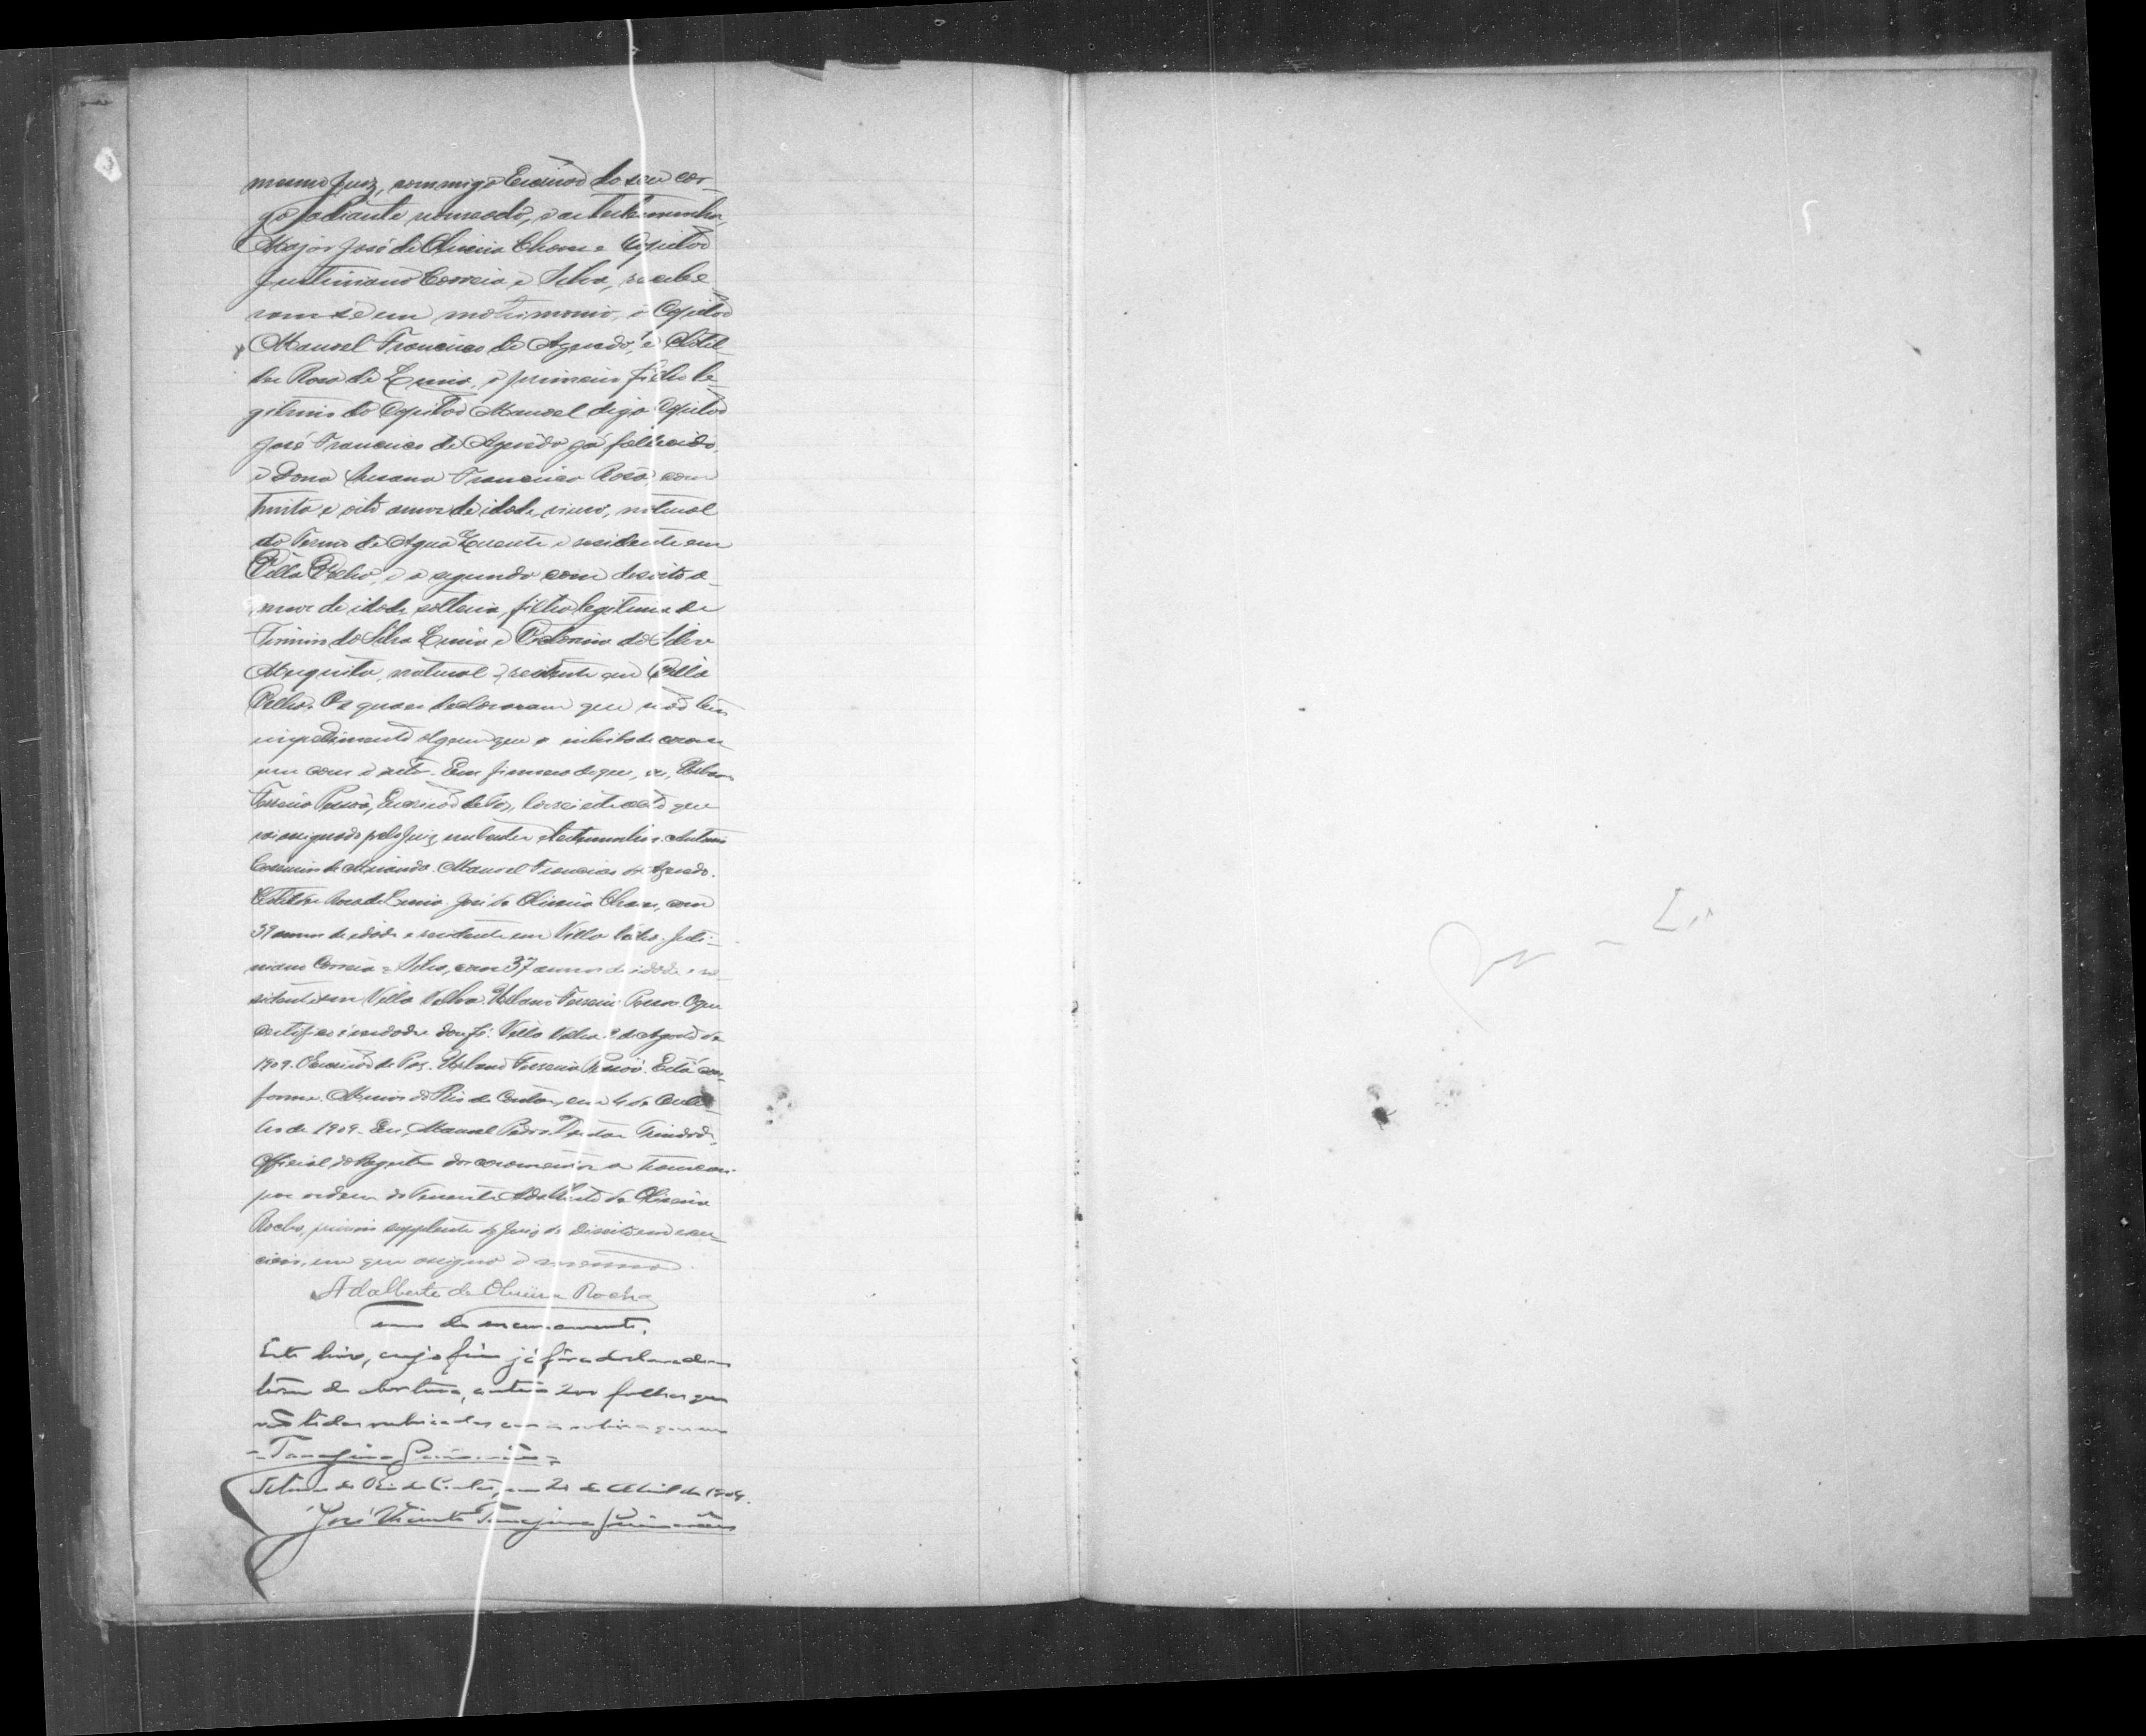 mesmo Juiz, commigo Escrivão do seu car-
go adiante nomeado, e as testemunhas,
Major José de Oliveira Chaves e Capitão
Justiniano Correia e Silva, recebe-
ram-se em matrimonio, o Capitão
Manoel Francisco de Azevedo, e Clotil-
des Rosa de, o primeiro filho le-
gitimo do Capitão Manoel digo Capitão
José Francisco de Azevedo já fallecido,
e Dona Francisca Rosa, com
trinta e oito annos de idade, viuvo, natural
do Termo de Agua Quente e residente em
Villa Velha, e a segunda com desoito a-
nnos de idade solteira, filha legitima de
Firmino da Silva e da Silva
Mesquita, natural e residente em Villa
Velha. Os quaes declararam que não tem
impedimento algum que o inhiba de casar
um com o outro. Em firmeza do que, eu, Urbano
Ferreira Pessôa, Escrivão de Paz, lavrei este acto que
vai assignado pelo Juiz, nubentes e testemunhas. Antonio
Cassimiro de Miranda. Manoel Francisco de Azevedo.
Clotildes Rosa de. José de Oliveira Chaves, com
39 annos de idade e residente em Villa Velha. Justi-
niano Correia e Silva, com 37 annos de idade e re-
sidente em Villa Velha. Urbano Ferreira Pessoa. O que
certifico é verdade dou fé. Villa Velha 9 de Agosto de
1909. O Escrivão de Paz. Urbano Ferreira Pessôa. Está con-
forme. Minas do Rio de Contas, em 4 de Outu-
bro de 1909. Eu, Manoel Pedro Dantas Trindade,
Official do Registro dos casamentos o transcrevi
por ordem do Tenente Adalberto de Oliveira
Rocha, primeiro supplente do Juiz de Direito em exer-
cicio, em que assigna o mesmo.
Adalberto de Oliveira Rocha
Termo de encerramento.
Este livro, cujo fim já fôra declarado no
termo de abertura, contem 200 folhas que
vão todas rubricadas com a rubrica que uso
- Tanajura Guimarães -
do Rio de Contas, em 20 de Abril de 1904.
José Vicente Tanajura Guimarães